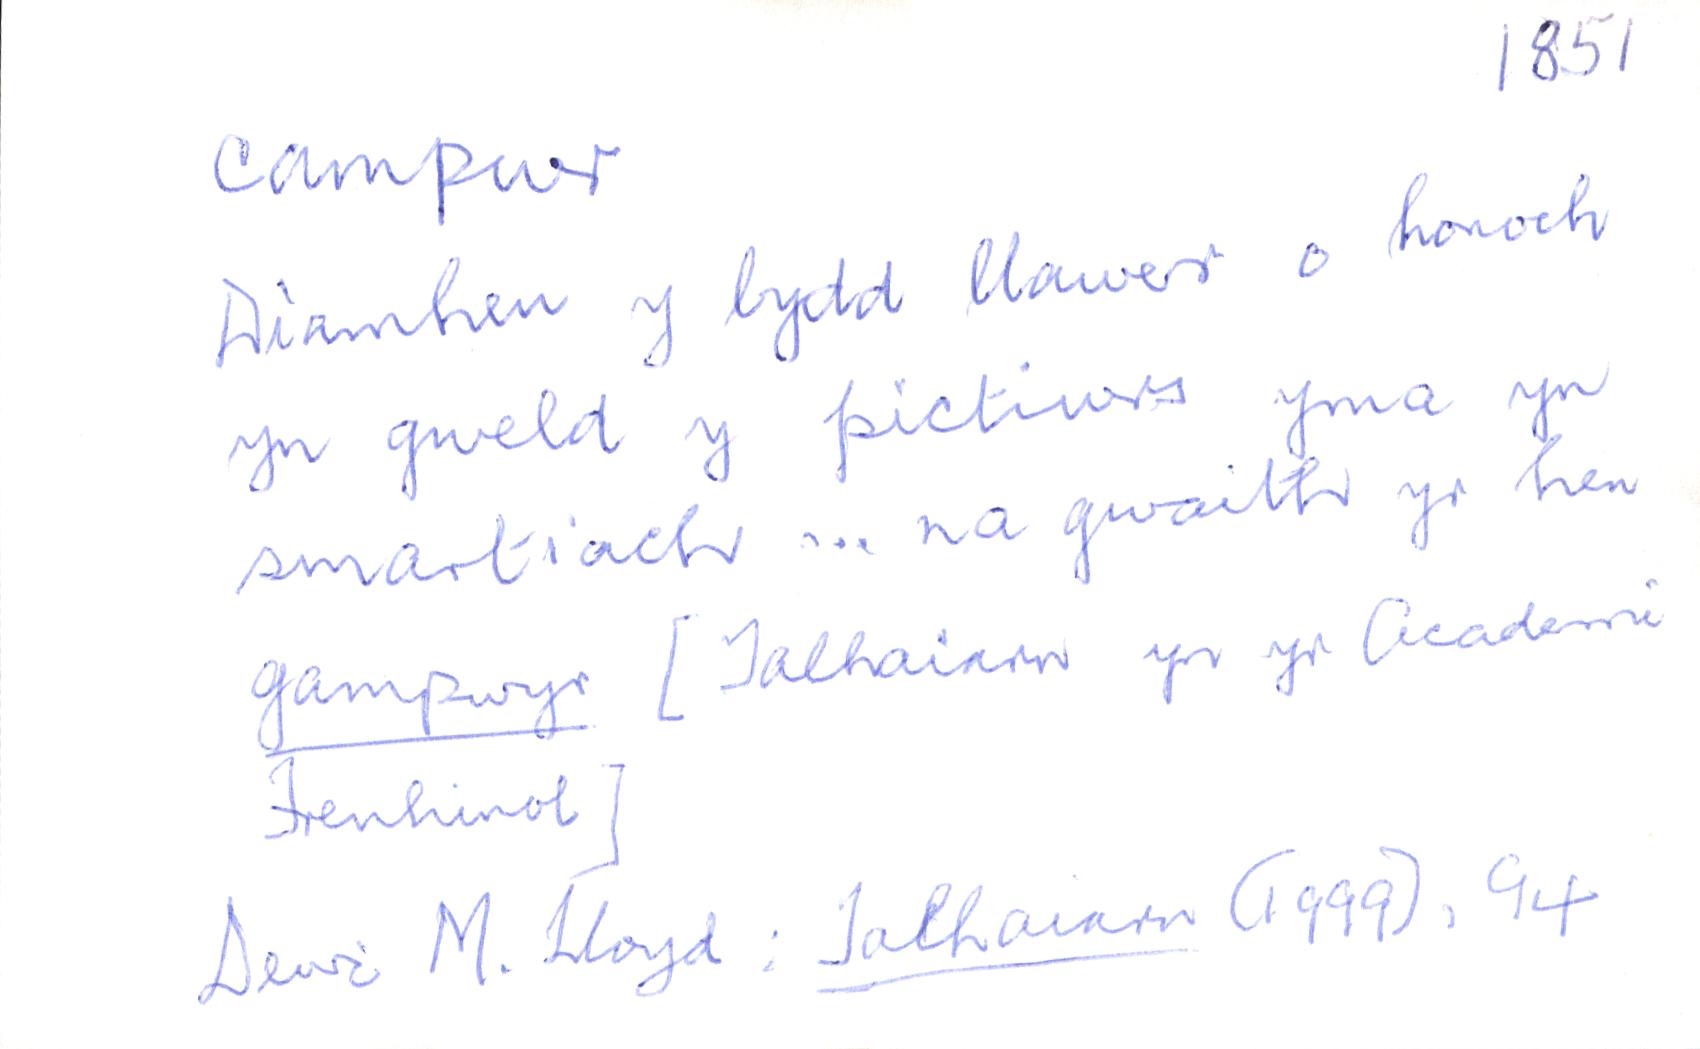 1851
campwr
Diamheu y bydd llawer o honoch
yn gweld y pictiwrs yma yn
smartiach ... na gwaith yr hen
gampwyr [Talhaiarn yn yr Academi
Frenhinol]
Dewi M. Lloyd : Talhaiarn (1999), 94